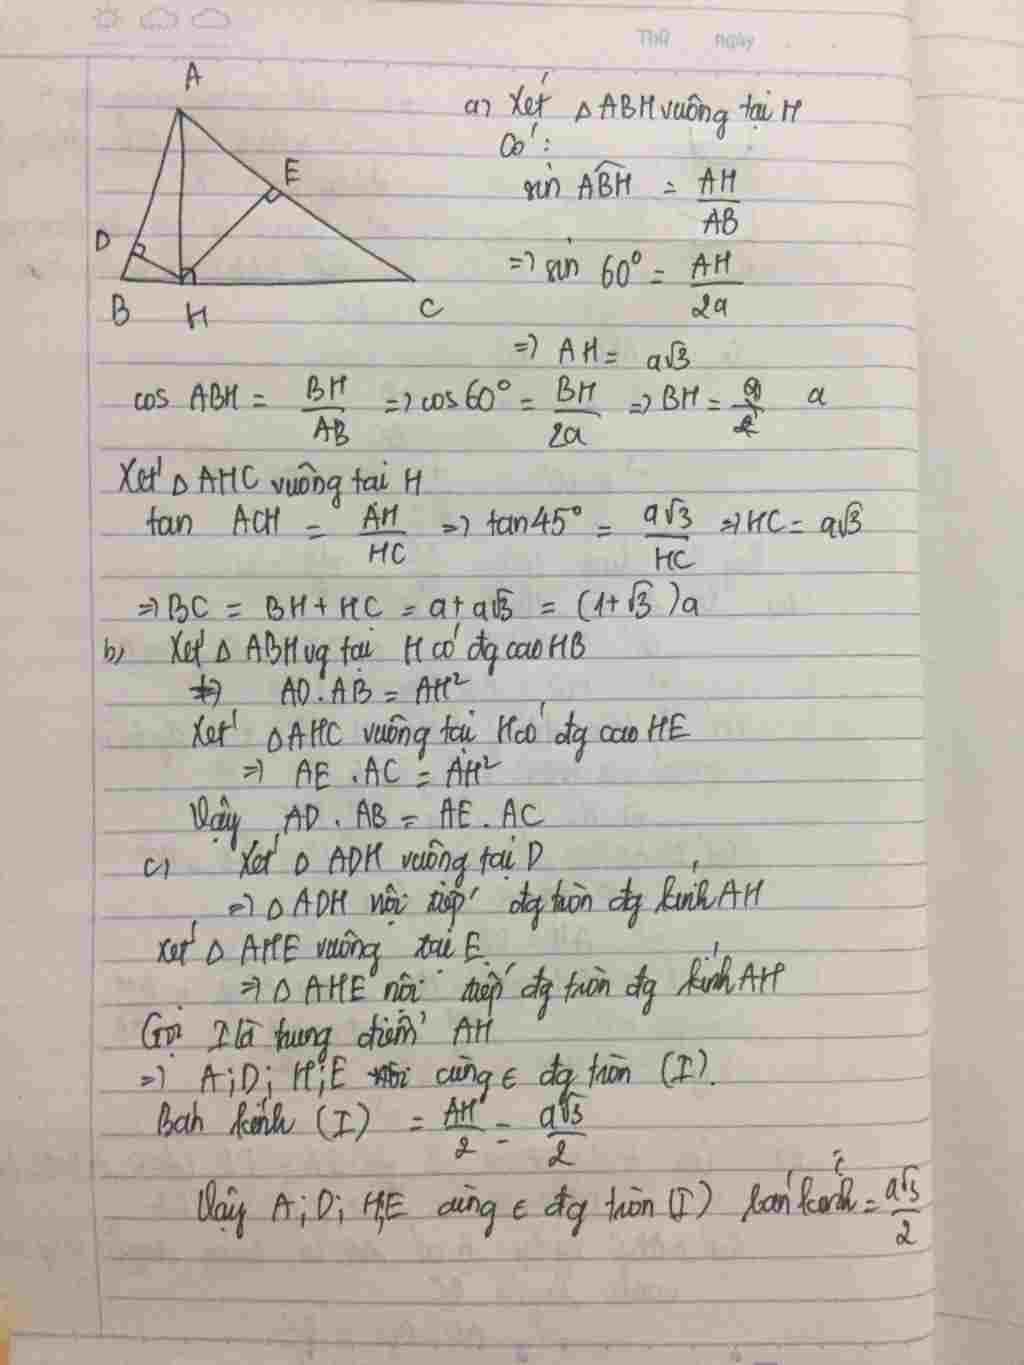 Thứ ngày
A
E
D
B
H
C
a) Xét △ ABH vuông tại H
Có:
sin ABH = AH/AB
=> sin 60° = AH/2a
=> AH = a√3
cos ABH = BH/AB => cos 60° = BH/2a => BH = a
Xét △ AHC vuông tại H
tan ACH = AH/HC => tan 45° = a√3/HC => HC = a√3
=> BC = BH + HC = a + a√3 = (1+√3)a
b) Xét △ ABH vg tại H có đg cao HB
=> AD.AB = AH²
Xét △ AHC vuông tại H có đg cao HE
=> AE.AC = AH²
Vậy AD.AB = AE.AC
c) Xét △ ADH vuông tại D
=> △ ADH nội tiếp đg tròn đg kính AH
Xét △ AHE vuông tại E
=> △ AHE nội tiếp đg tròn đg kính AH
Gọi I là trung điểm AH
=> A; D; H; E cùng ∈ đg tròn (I).
Bán kính (I) = AH/2 = a√3/2
Vậy A; D; H; E cùng ∈ đg tròn (I) bán kính = a√3/2